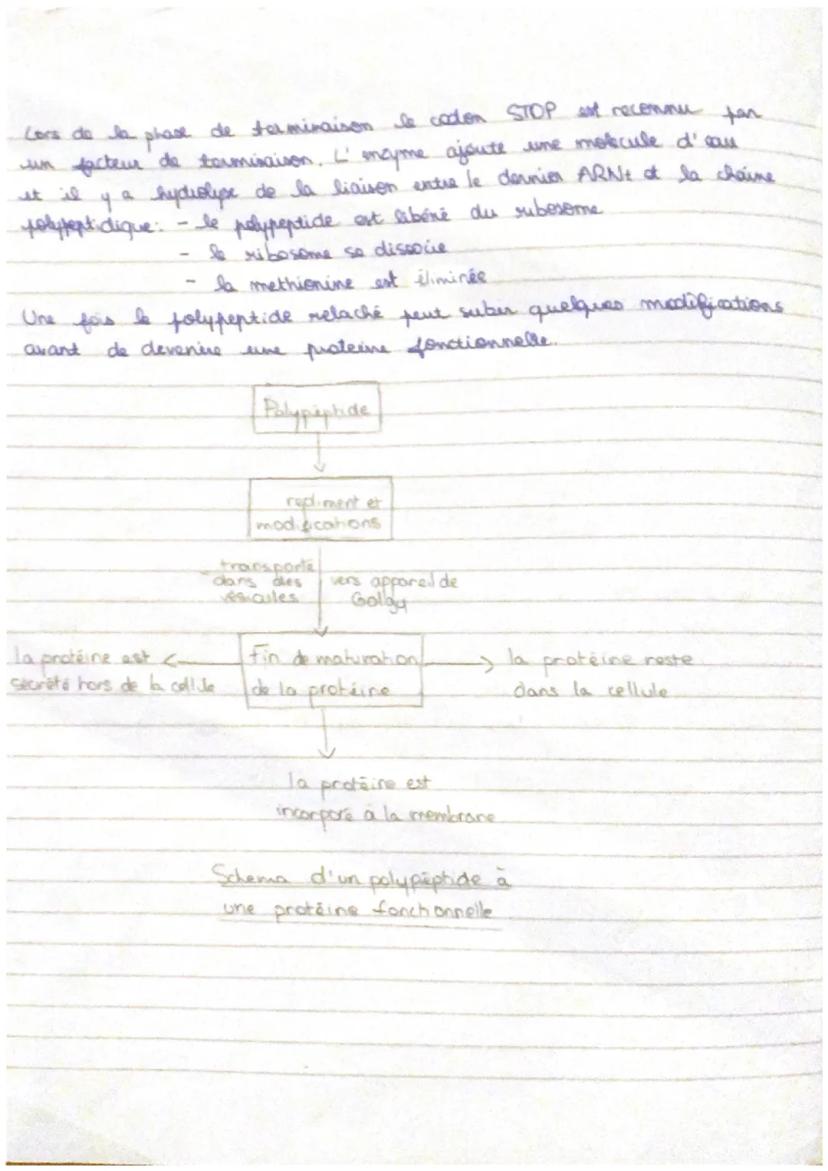 Lors de la phase de terminaison le codon STOP est reconnu par
un facteur de terminaison. L'enzyme ajoute une molécule d'eau
et il y a hydrolyse de la liaison entre le dernier ARNt et la chaîne
polypeptidique: - le polypeptide est libéré du ribosome
- le ribosome se dissocie
- la methionine est éliminée
Une fois le polypeptide relaché peut subir quelques modifications
avant de devenire une proteine fonctionnelle.
Polypéptide
repliment et
modifications
transporté
dans des
vésicules
vers appareil de
Golgy
la protéine est
sécrété hors de la cellule
Fin de maturation
de la protéine
la protéine reste
dans la cellule
la protéine est
incorporé à la membrane
Schema d'un polypéptide à
une protéine fonctionnelle